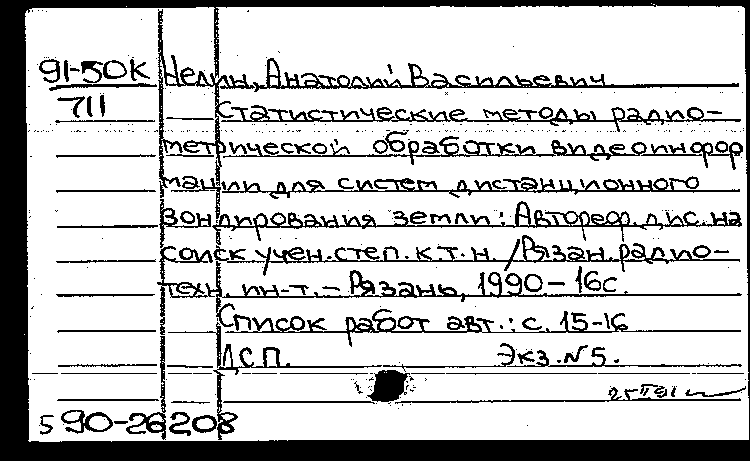 91-50К Нелин, Анатолий Васильевич
711 Статистические методы радио-
метрической обработки видеоинфор
мации для систем дистанционного
зондирования земли: Автореф. дис. на
соиск. учен. степ. к.т.н. /Рязан. радио-
техн. ин-т. - Рязань, 1990 - 16с.
Список работ авт.: с. 15-16
ДСП. Экз. N5.
5 90-26208